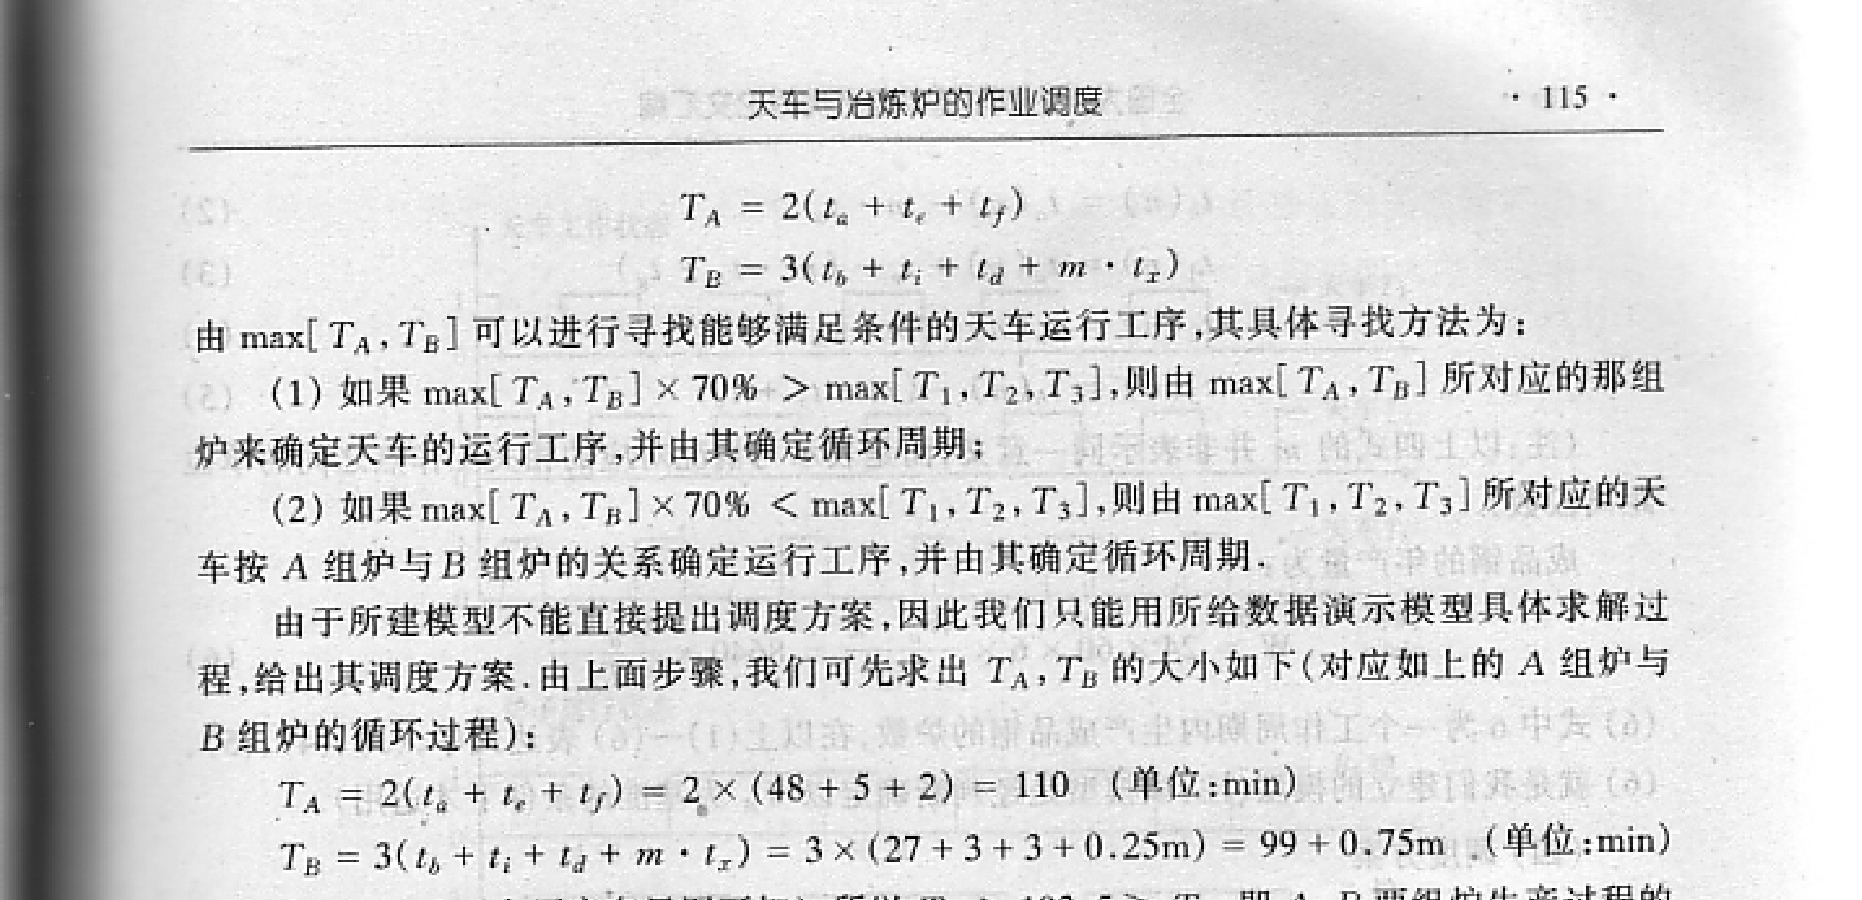 天车与冶炼炉的作业调度 · 115 ·
T_A = 2(t_a + t_e + t_f)
T_B = 3(t_b + t_i + t_d + m · t_x)
由 max[T_A, T_B] 可以进行寻找能够满足条件的天车运行工序,其具体寻找方法为:
(1) 如果 max[T_A, T_B] × 70% > max[T_1, T_2, T_3],则由 max[T_A, T_B] 所对应的那组
炉来确定天车的运行工序,并由其确定循环周期;
(2) 如果 max[T_A, T_B] × 70% < max[T_1, T_2, T_3],则由 max[T_1, T_2, T_3] 所对应的天
车按 A 组炉与 B 组炉的关系确定运行工序,并由其确定循环周期.
由于所建模型不能直接提出调度方案,因此我们只能用所给数据演示模型具体求解过
程,给出其调度方案.由上面步骤,我们可先求出 T_A, T_B 的大小如下(对应如上的 A 组炉与
B 组炉的循环过程):
T_A = 2(t_a + t_e + t_f) = 2 × (48 + 5 + 2) = 110 (单位:min)
T_B = 3(t_b + t_i + t_d + m · t_x) = 3 × (27 + 3 + 3 + 0.25m) = 99 + 0.75m (单位:min)